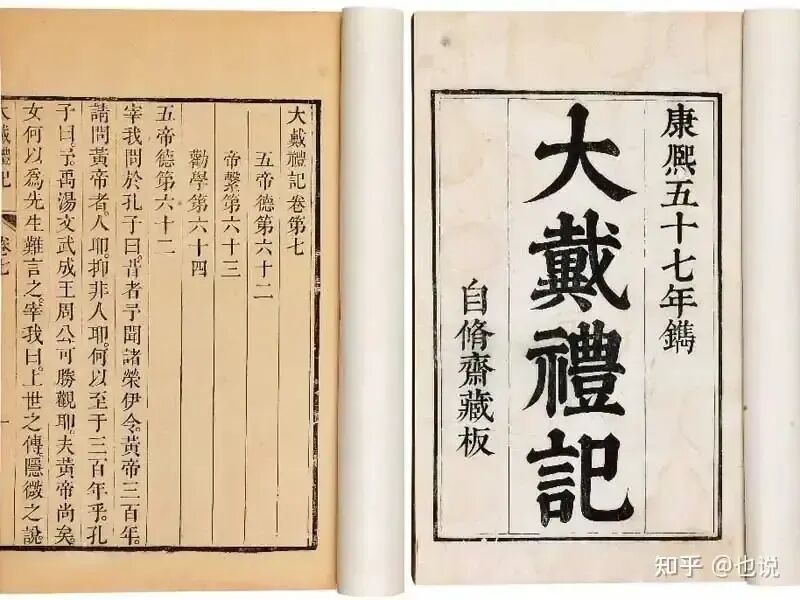 康熙五十七年鐫
大戴禮記
自脩齋藏板
大戴禮記卷第七
五帝德第六十二
帝繫第六十三
勸學第六十四
五帝德第六十二
宰我問於孔子曰。昔者予聞諸榮伊令。黃帝三百年。
請問黃帝者。人耶。抑非人耶。何以至于三百年乎。孔
子曰。予。禹湯文武成王周公。可勝觀耶。夫黃帝尚矣。
女何以爲先生難言之。宰我曰。上世之傳。隱微之說。
大戴禮記 卷七 一
知乎 @也说